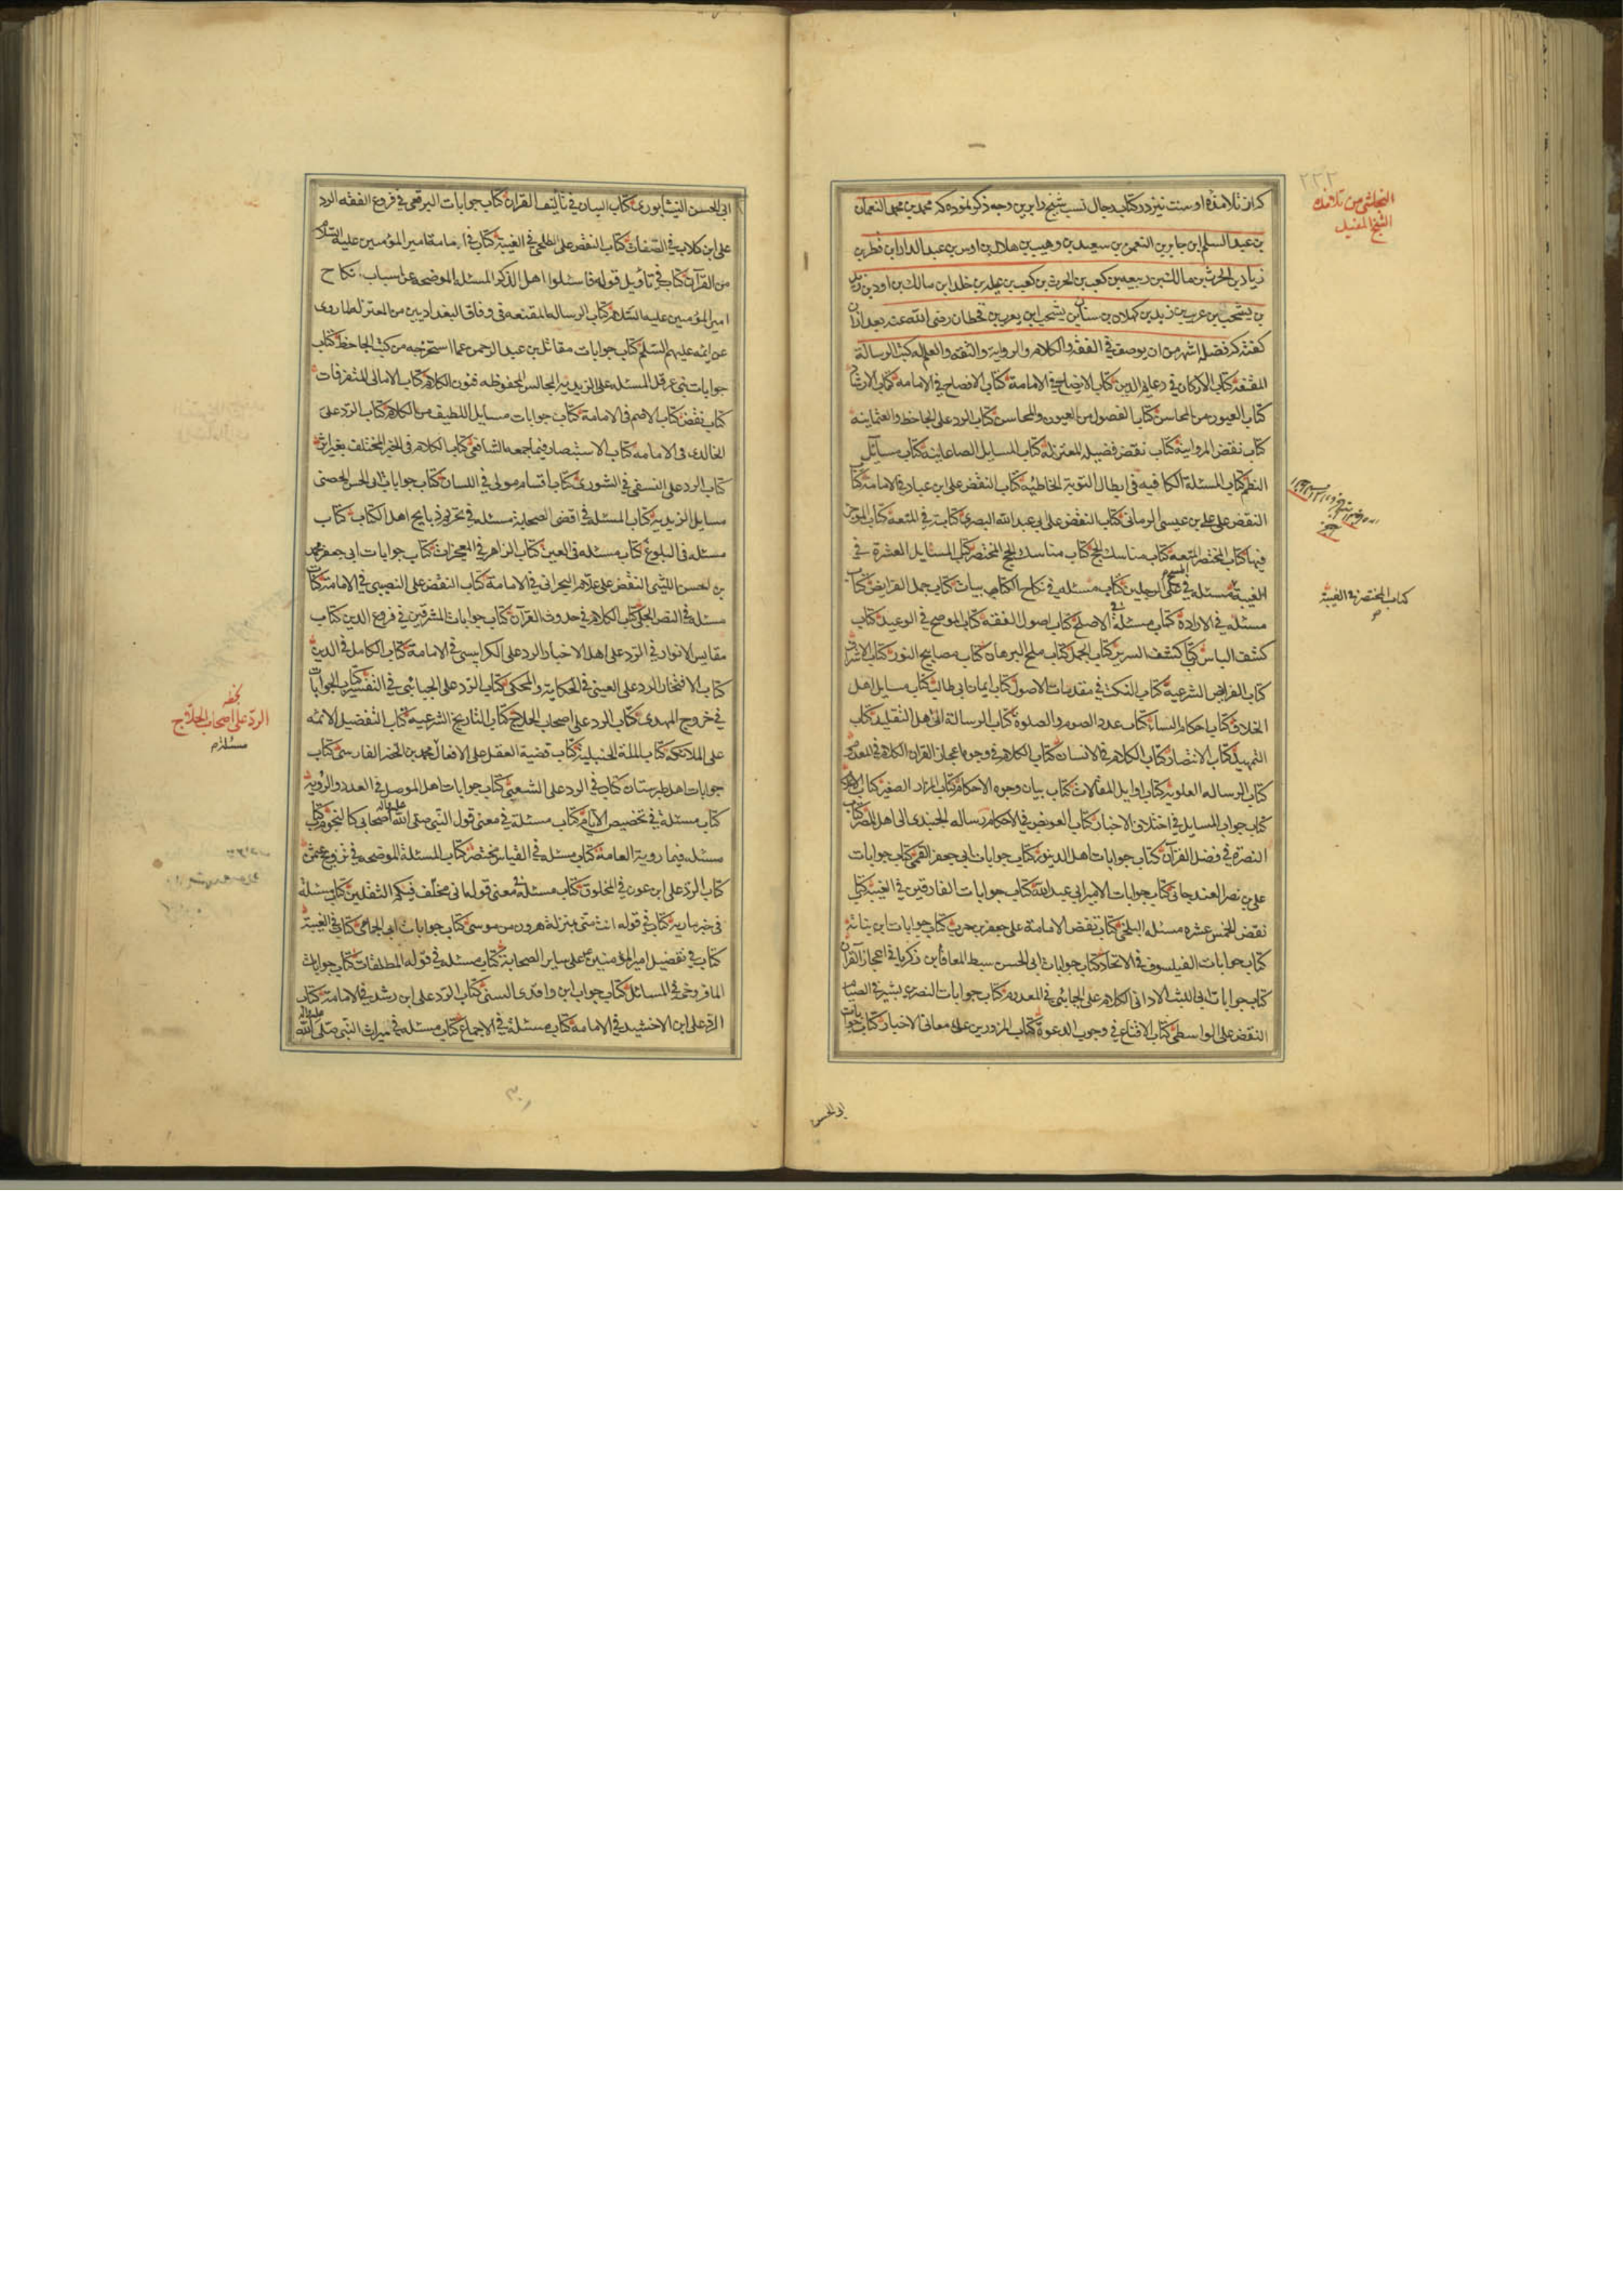 که از تلامذه اوست نیز در کتاب رجال نسب شیخ را برین وجه ذکر نموده که محمد بن محمد النعمان
بن عبد السلم ابن جابر بن النعمن بن سعید بن وهیب بن هلال بن اوس بن عبد الدار ابن قطر بن
زیاد بن الحرث بن مالک بن ربیعه بن کعب بن الحرث بن کعب بن علة بن خلد ابن مالک بن اود بن زید
بن یشجب بن عریب بن زید بن کهلان بن سبا بن یشجب ابن یعرب بن قحطان رضی الله عنه بعد ازان
کفته که فضله اشهر من ان یوصف فی الفقه والکلام والروایة والثقه والعلم له کتب الرسالة
المقنعة کتاب الارکان فی دعایم الدین کتاب الایضاح فی الامامة کتاب الافصاح فی الامامه کتاب الارشاد
کتاب العیون من المحاسن کتاب الفصول من العیون والمحاسن کتاب الرد علی الجاحظ والعثمانیة
کتاب نقض المروانیة کتاب نقض فضیلة المعتزلة کتاب المسایل الصاغانیة کتاب مسایل
النظم کتاب المسئلة الکافیه فی ابطال التوبة الخاطئه کتاب النقض علی ابن عباد فی الامامة کتاب
النقض علی علی بن عیسی الرمانی کتاب النقض علی ابی عبد الله البصری کتابه فی المتعة کتاب الموجز
فیها کتاب المختصر المتعة کتاب مناسک الحج کتاب مناسک الحج المختصر کتاب المسایل العشرة فی
الغیبة مسئله فی المسح علی الرجلین کتاب مسئله فی نکاح الکتابیات کتاب جمل الفرایض کتاب
مسئلة فی الارادة کتاب مسئلة فی الاصلح کتاب اصول الفقه کتاب الموضح فی الوعید کتاب
کشف الالباس کتاب کشف السرایر کتاب الجمل کتاب ملح البرهان کتاب مصابیح النور کتاب الاشراف
کتاب الفرایض الشرعیة کتاب النکت فی مقدمات الاصول کتاب ایمان ابی طالب کتاب مسایل اهل
الخلاف کتاب احکام النساء کتاب عدد الصوم والصلوة کتاب الرسالة الی اهل التقلید کتاب
التمهید کتاب الانتصار کتاب الکلام فی الانسان کتاب الکلام فی وجوه اعجاز القران الکلام فی المعدوم
کتاب الرساله العلویة کتاب اوایل المقالات کتاب بیان وجوه الاحکام کتاب المزار الصغیر کتاب
کتاب جواب المسایل فی اختلاف الاخبار کتاب العویص فی الاحکام رساله الجنیدی الی اهل المصر کتاب
النصرة فی فضل القرآن کتاب جوابات اهل الدینور کتاب جوابات ابی جعفر القمی کتاب جوابات
علی بن نصر العبدجانی کتاب جوابات الامیر ابی عبد الله کتاب جوابات الفارقین فی الغیبة کتاب
نقض الخمس عشره مسئله البلخی کتاب نقض الامامة علی جعفر بن حرب کتاب جوابات ابن نباتة
کتاب جوابات الفیلسوف فی الاتحاد کتاب جوابات ابی الحسن سبط المعافا بن زکریا فی اعجاز القرآن
کتاب جوابات ابی اللیث الاوانی الکلام علی الجبائی فی المعدوم کتاب جوابات النصر بن بشیر فی الصیام
النقض علی الواسطی کتاب الاقناع فی وجوب الدعوة کتاب المزورین علی معانی الاخبار کتاب جوابات
ابی الحسن
النجاشی من تلامذة
الشیخ المفید
کتاب المختصر فی الغیبة
۲۲۲
ابی الحسن النیشابوری کتاب البیان فی تألیف القران کتاب جوابات البرقعی فی فروع الفقه الرد
علی ابن کلاب فی الصفات کتاب النقض علی الطلحی فی الغیبة کتاب فی امامة امیر المؤمنین علیه السلام
من القرآن کتاب فی تأویل قوله فاسئلوا اهل الذکر المسئلة الموضحه عن اسباب نکاح
امیر المؤمنین علیه السلام کتاب الرساله المقنعة فی وفاق البغدادیین من المعتزلة لما روی
عن ائمه علیهم السلم کتاب جوابات مقاتل بن عبد الرحمن عما استخرجه من کتب الجاحظ کتاب
جوابات بنی عرقل المسئله علی الزیدیه المجالس المحفوظه فنون الکلام کتاب الامالی المتفرقات
کتاب نقض کتاب الاصم فی الامامة کتاب جوابات مسایل اللطیف من الکلام کتاب الرد علی
الخالدی فی الامامه کتاب الاستبصار فیما جمعه الشافعی کتاب الکلام فی الخبر المختلق بغیر اثر
کتاب الرد علی النسفی فی الشوری کتاب اقسام مولی فی اللسان کتاب جوابات ابی الحسن الحصنی
مسایل الزیدیه کتاب المسئلة فی اقضی الصحابة مسئله فی تحریم ذبایح اهل الکتاب کتاب
مسئله فی البلوغ کتاب مسئله فی العین کتاب الزاهر فی المعجزات کتاب جوابات ابی جعفر محمد
بن الحسن اللیثی النقض علی غلام البحرانی فی الامامة کتاب النقض علی النصیبی فی الامامة کتاب
مسئله فی النص الجلی کتاب الکلام فی حدوث القرآن کتاب جوابات المشرقین فی فروع الدین کتاب
مقابس الانوار فی الرد علی اهل الاخبار الرد علی الکرابیسی فی الامامة کتاب الکامل فی الدین
کتاب الافتخار الرد علی العینی فی الحکایة والمحکی کتاب الرد علی الجبائی فی التفسیر کتاب الجوابات
فی خروج المهدی کتاب الرد علی اصحاب الحلاج کتاب التاریخ الشرعیة کتاب التفضیل الائمه
علی الملائکه کتاب المسئلة الحنبلیة کتاب قضیة العقل علی الافعال محمد بن الخضر الفارسی کتاب
جوابات اهل طبرستان کتاب فی الرد علی الشعیبی کتاب جوابات اهل الموصل فی العدد والرؤیة
کتاب مسئلة فی تخصیص الایام کتاب مسئلة فی معنی قول النبی صلی الله علیه وآله اصحابی کالنجوم کتاب
مسئله فیما رویة العامة کتاب مسئله فی القیاس مختصر کتاب المسئلة الموضحه فی تزویج عثمن
کتاب الرد علی ابن عون فی المخلوق کتاب مسئلة فی معنی قوله انی مخلف فیکم الثقلین کتاب مسئلة
فی خبر ماریة کتاب فی قوله انت منی بمنزلة هرون من موسی کتاب جوابات ابن الحمامی کتاب فی الغیبة
کتاب فی تفضیل امیر المؤمنین ع علی سایر الصحابة کتاب مسئله فی قوله المطلقات کتاب جوابات
المافروخی فی المسائل کتاب جواب ابن واقدی السنی کتاب الرد علی ابن رشید فی الامامة کتاب
الرد علی ابن الاخشید فی الامامه کتاب مسئلة فی الاجماع کتاب مسئله فی میراث النبی صلی الله علیه وآله
الرد علی اصحاب الحلاج